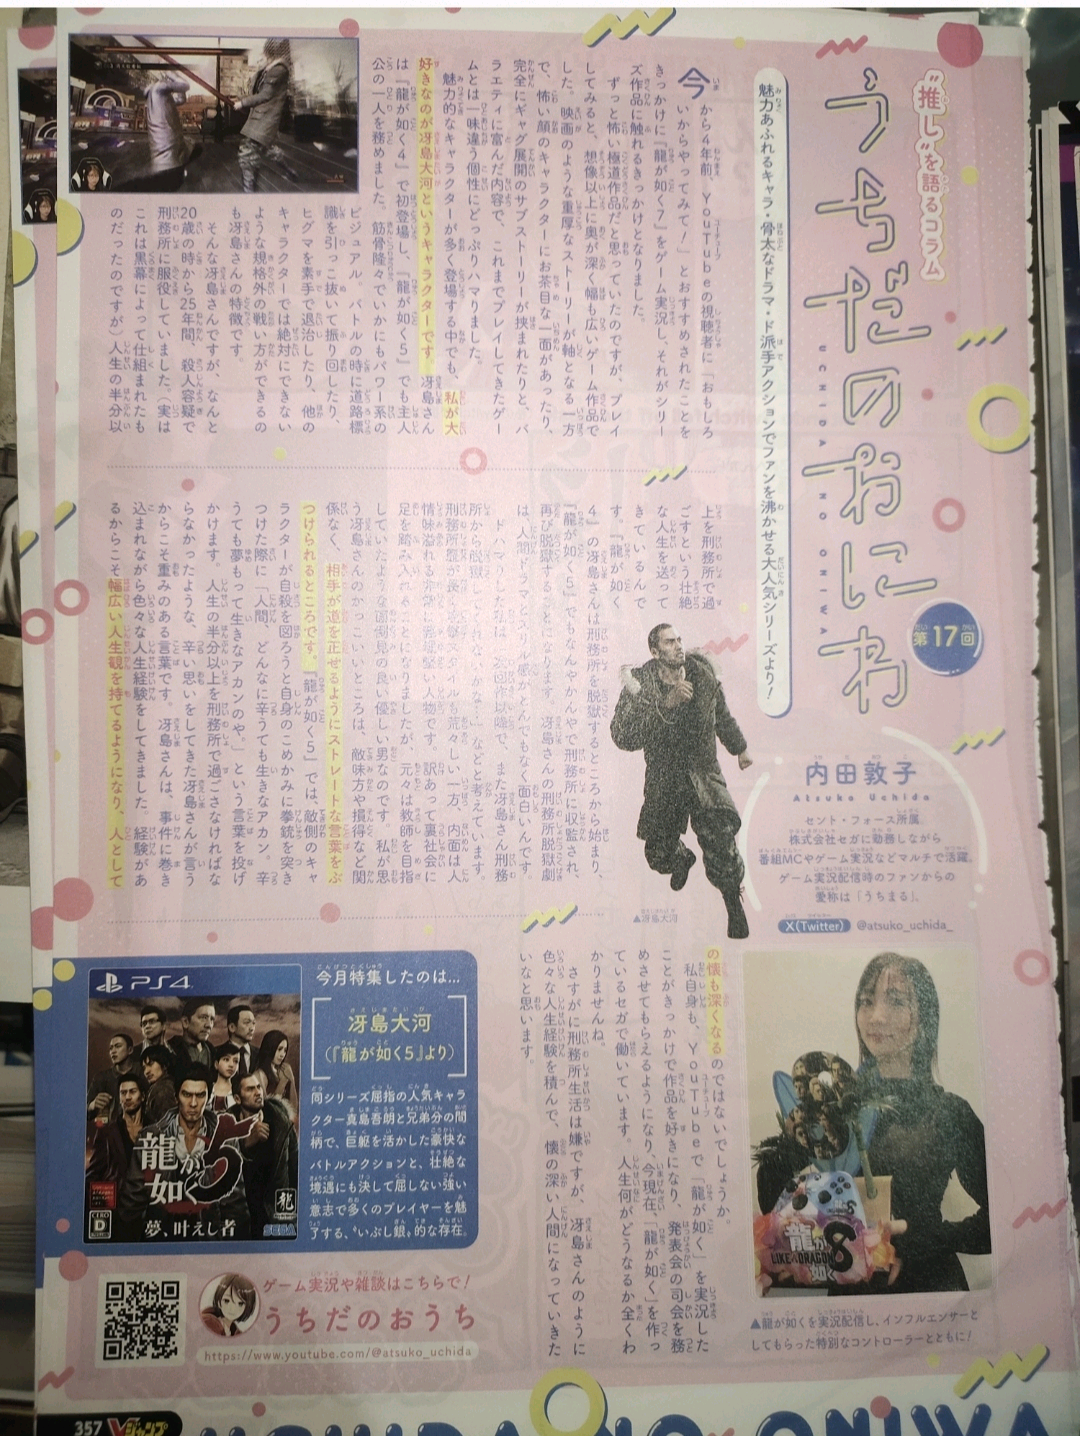 "推し"を語るコラム
うちだのおにわ
UCHIDA NO ONIWA
第17回
魅力あふれるキャラ・骨太なドラマ・ド派手アクションでファンを沸かせる大人気シリーズより!
今から4年前、YouTubeの視聴者に「おもしろ
いからやってみて!」とおすすめされたことを
きっかけに『龍が如く7』をゲーム実況し、それがシリー
ズ作品に触れるきっかけとなりました。
ずっと怖い極道作品だと思っていたのですが、プレイ
してみると、想像以上に奥が深く幅も広いゲーム作品で
した。映画のような重厚なストーリーが軸となる一方
で、怖い顔のキャラクターにお茶目な一面があったり、
完全にギャグ展開のサブストーリーが挟まれたりと、バ
ラエティに富んだ内容で、これまでプレイしてきたゲー
ムとは一味違う個性にどっぷりハマりました。
魅力的なキャラクターが多く登場する中でも、私が大
好きなのが冴島大河というキャラクターです。冴島さん
は『龍が如く4』で初登場し、『龍が如く5』でも主人
公の一人を務めました。筋骨隆々でいかにもパワー系の
ビジュアル。バトルの時に道路標
識を引っこ抜いて振り回したり、
ヒグマを素手で退治したり、他の
キャラクターでは絶対にできない
ような規格外の戦い方ができるの
も冴島さんの特徴です。
そんな冴島さんですが、なんと
20歳の時から25年間、殺人容疑で
刑務所に服役していました(実は
これは黒幕によって仕組まれたも
のだったのですが)人生の半分以
上を刑務所で過
ごすという壮絶
な人生を送って
きているんで
す。『龍が如く
4』の冴島さんは刑務所を脱獄するところから始まり、
『龍が如く5』でもなんやかんやで刑務所に収監され、
再び脱獄することになります。冴島さんの刑務所脱獄劇
は、人間ドラマとスリル感がとんでもなく面白いんです。
ドハマりした私は、次回作以降で、また冴島さん刑務
所から脱獄してくれないかな…などと考えています。
刑務所歴が長く攻撃スタイルも荒々しい一方、内面は人
情味溢れる非常に義理堅い人物です。訳あって裏社会に
足を踏み入れることになりましたが、元々は教師を目指
していたような面倒見の良い優しい男なのです。私が思
う冴島さんのかっこいいところは、敵味方や損得など関
係なく、相手が道を正せるようにストレートな言葉をぶ
つけられるところです。『龍が如く5』では、敵側のキャ
ラクターが自殺を図ろうと自身のこめかみに拳銃を突き
つけた際に「人間、どんなに辛うても生きなアカン。辛
うても夢もって生きなアカンのや。」という言葉を投げ
かけます。人生の半分以上を刑務所で過ごさなければな
らなかったような、辛い思いをしてきた冴島さんが言う
からこそ重みのある言葉です。冴島さんは、事件に巻き
込まれながら色々な人生経験をしてきました。経験があ
るからこそ幅広い人生観を持てるようになり、人として
の懐も深くなるのではないでしょうか。
私自身も、YouTubeで『龍が如く』を実況した
ことがきっかけで作品を好きになり、発表会の司会を務
めさせてもらえるようになり、今現在、『龍が如く』を作っ
ているセガで働いています。人生何がどうなるか全くわ
かりませんね。
さすがに刑務所生活は嫌ですが、冴島さんのように
色々な人生経験を積んで、懐の深い人間になっていきた
いなと思います。
▲冴島大河
内田敦子
Atsuko Uchida
セント・フォース所属。
株式会社セガに勤務しながら
番組MCやゲーム実況などマルチで活躍。
ゲーム実況配信時のファンからの
愛称は「うちまる」。
X(Twitter) @atsuko_uchida_
▲龍が如くを実況配信し、インフルエンサーと
してもらった特別なコントローラーとともに!
龍が如く8
LIKE A DRAGON
PS4
龍が如く5
夢、叶えし者
CERO D
SEGA
今月特集したのは…
冴島大河
(『龍が如く5』より)
同シリーズ屈指の人気キャラ
クター真島吾朗と兄弟分の間
柄で、巨躯を活かした豪快な
バトルアクションと、壮絶な
境遇にも決して屈しない強い
意志で多くのプレイヤーを魅
了する、"いぶし銀"的な存在。
ゲーム実況や雑談はこちらで!
うちだのおうち
https://www.youtube.com/@atsuko_uchida
357 Vジャンプ
UCHIDA NO ONIWA